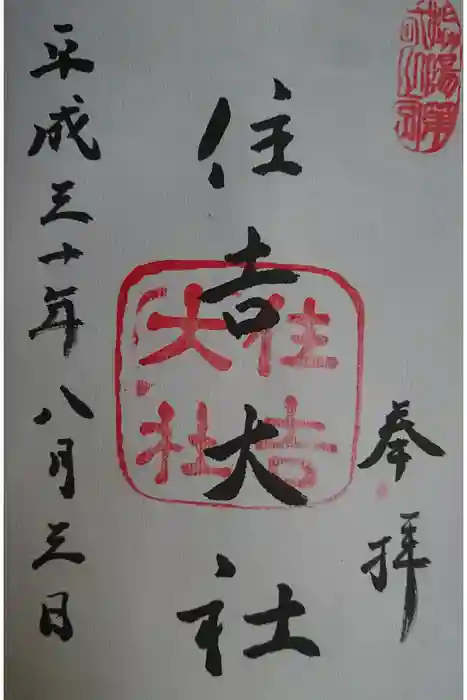 奉拝
住吉大社
住吉
大社
平成三十年八月三日